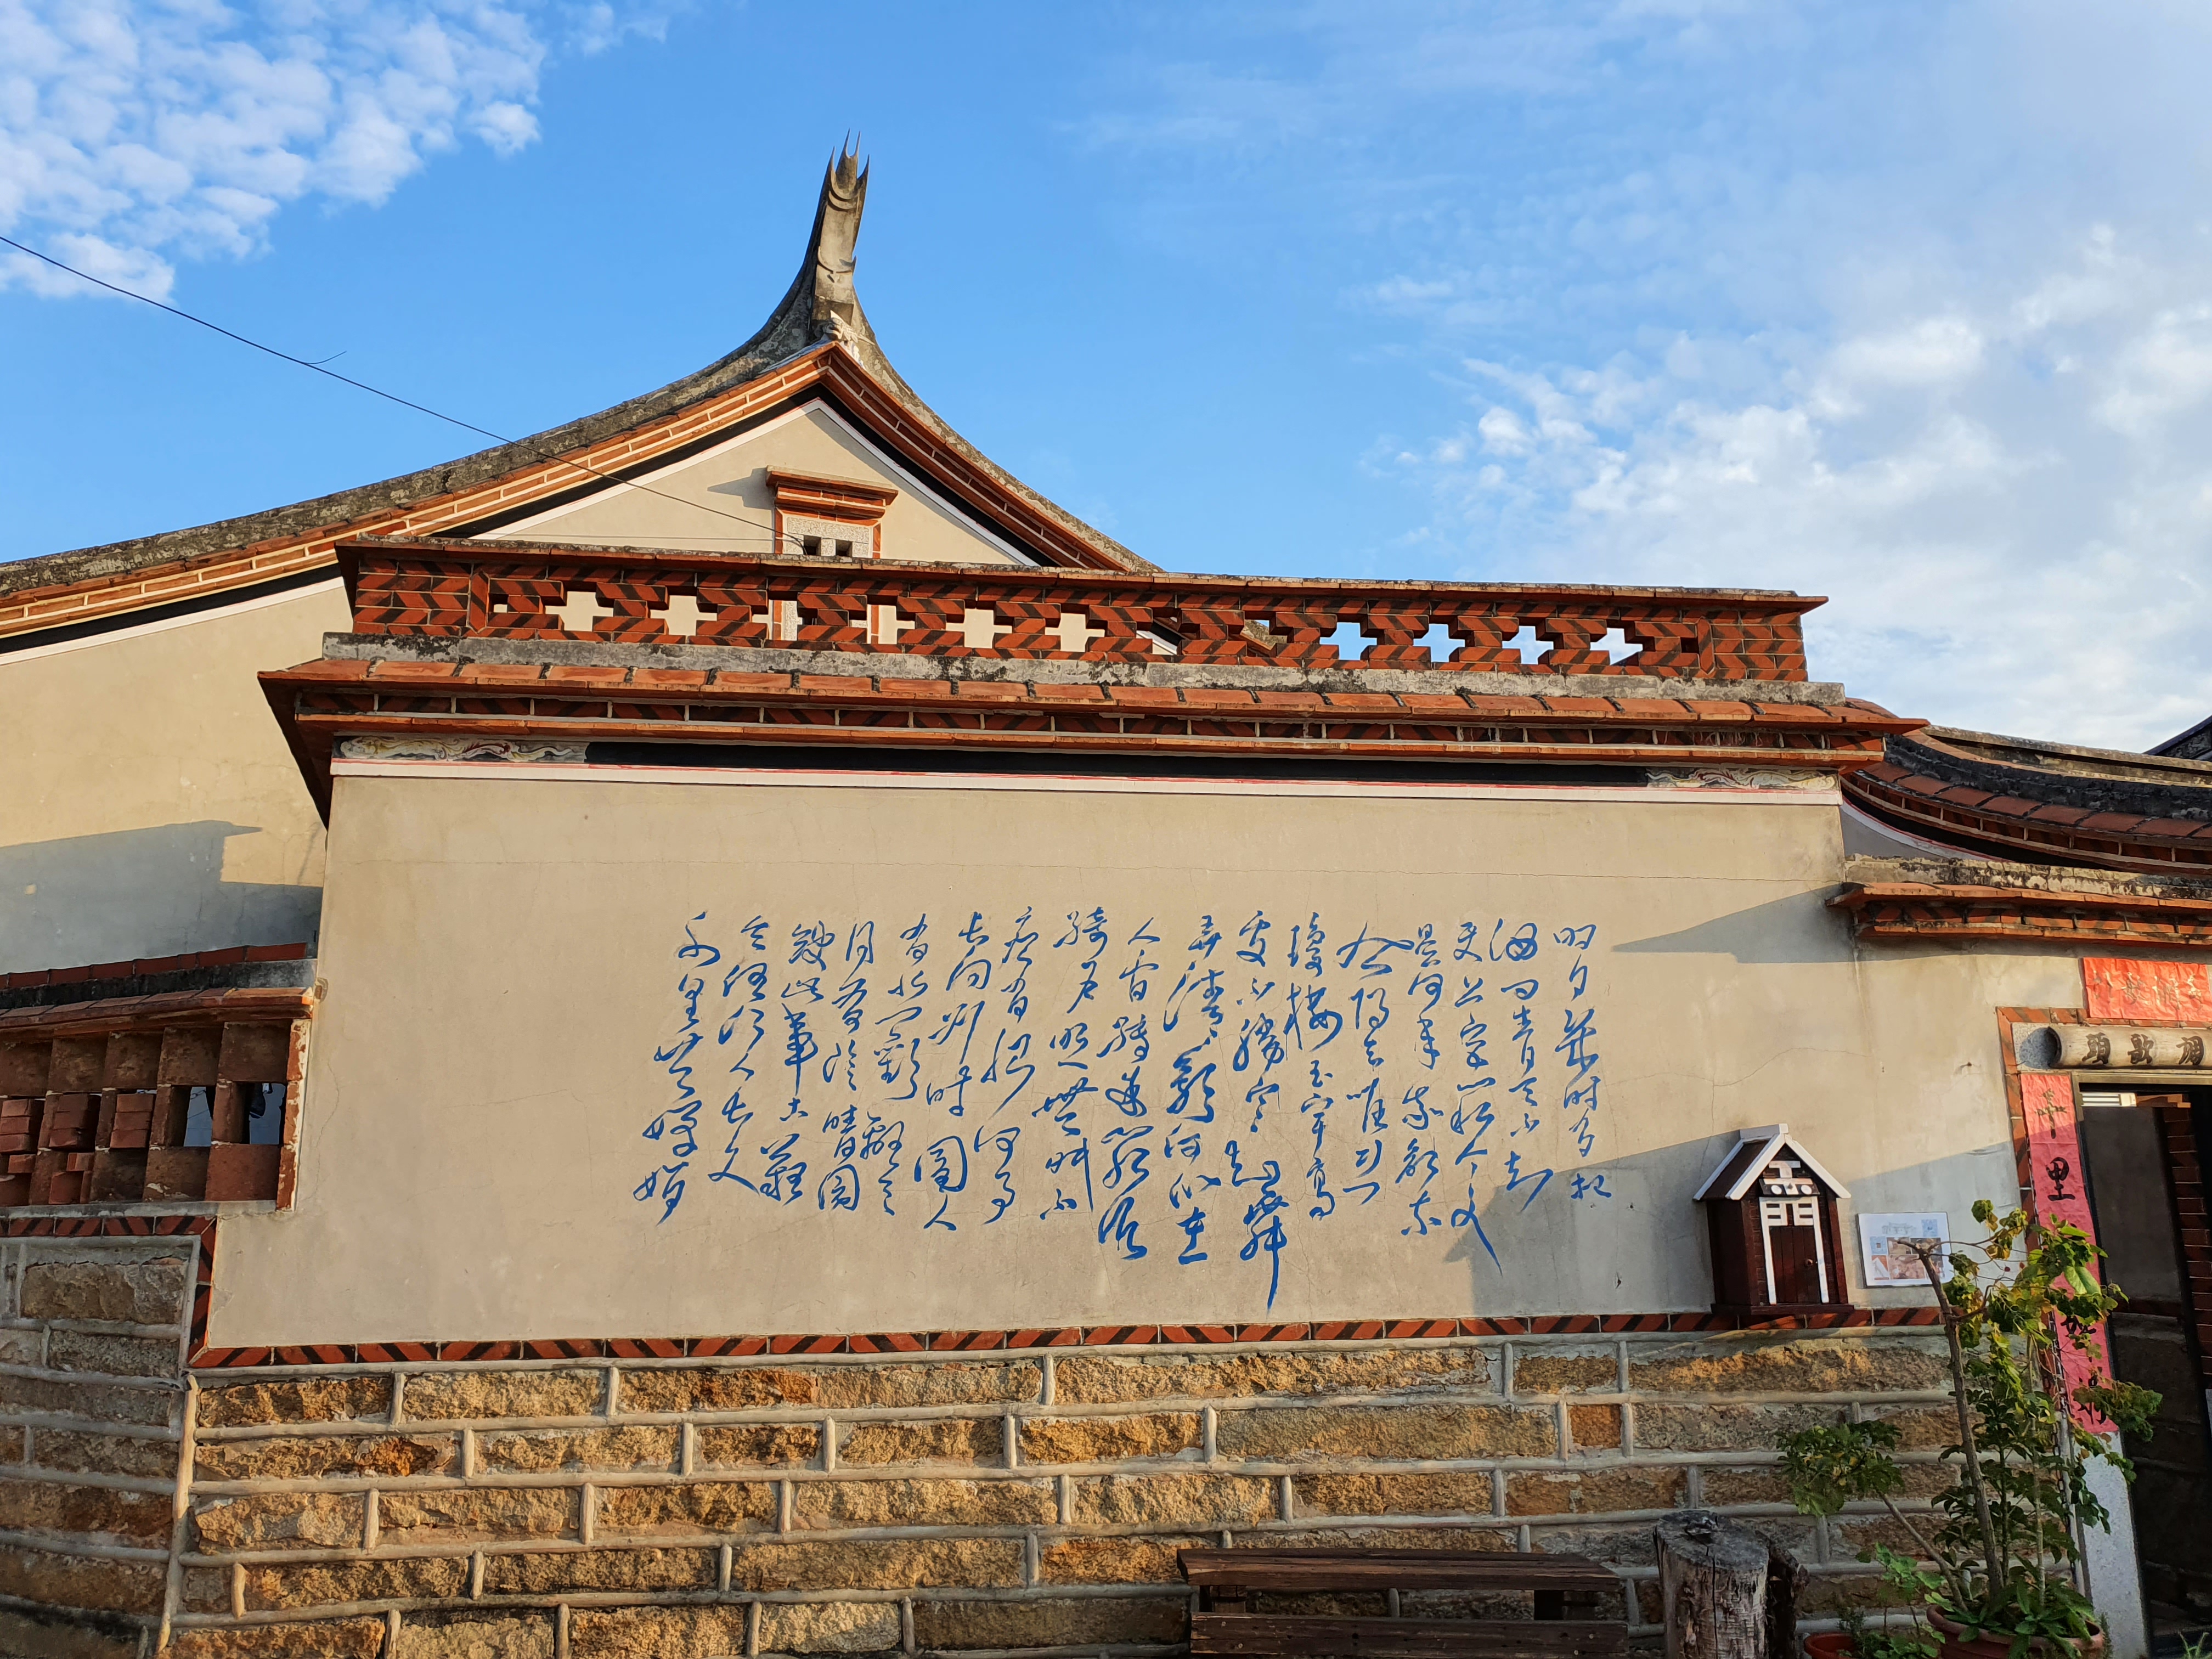 明月幾時有把
酒問青天不知
天上宮闕今夕
是何年我欲乘
風歸去唯恐
瓊樓玉宇高
處不勝寒起舞
弄清影何似在
人間轉朱閣低
綺戶照無眠不
應有恨何事
長向別時圓人
有悲歡離合
月有陰晴圓
缺此事古難
全但願人長久
千里共嬋娟
調歌頭
千里